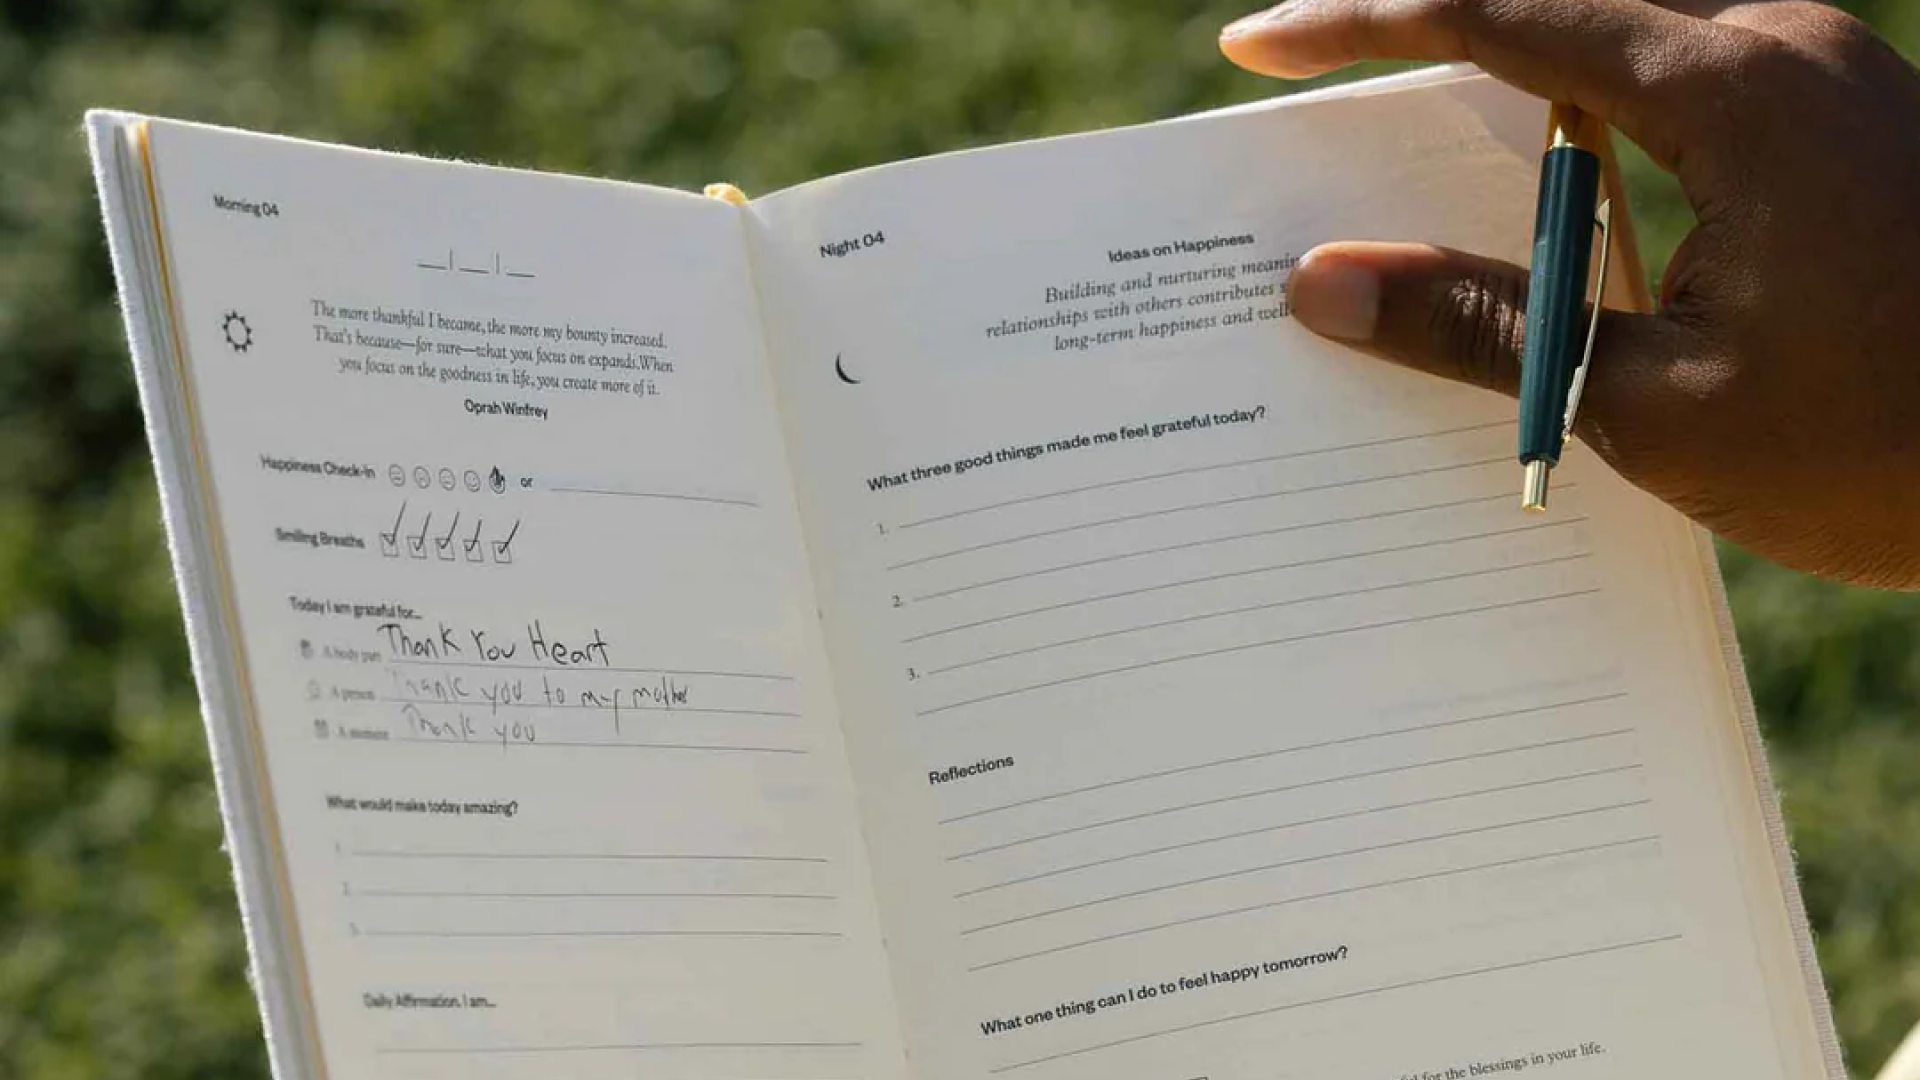 Morning 04
The more thankful I became, the more my bounty increased.
That's because—for sure—what you focus on expands. When
you focus on the goodness in life, you create more of it.
Oprah Winfrey
Happiness Check-in or
Smiling Breaths
Today I am grateful for...
A body part Thank You Heart
A person Thank you to my mother
A moment Thank you
What would make today amazing?
1.
2.
3.
Daily Affirmation. I am...
Night 04
Ideas on Happiness
Building and nurturing
relationships with others contributes
long-term happiness and
What three good things made me feel grateful today?
1.
2.
3.
Reflections
What one thing can I do to feel happy tomorrow?
for the blessings in your life.